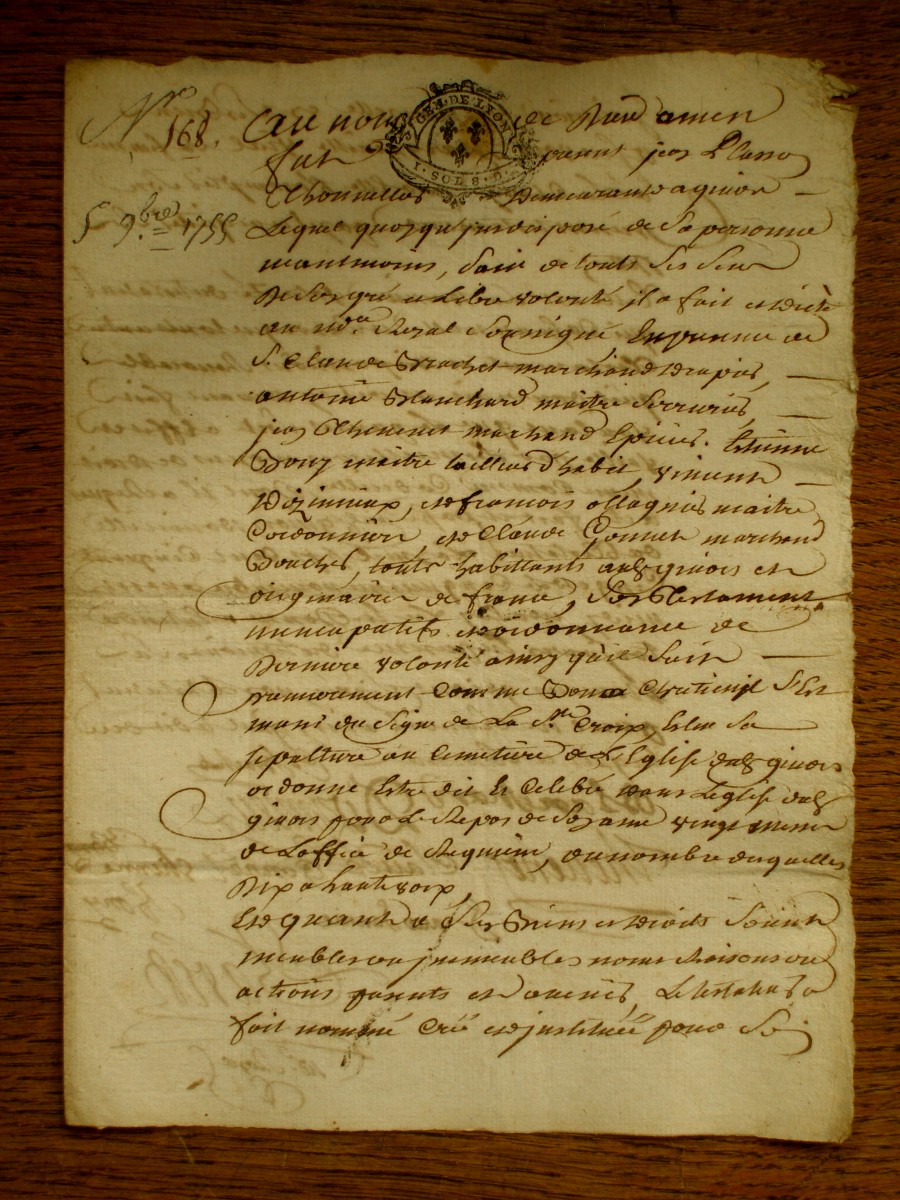 Nro 168.
5 9bre 1755
GEN. DE LYON
1. SOLS 8. D
au nom de Dieu amen
fut present jean
demeurant a givors
Lequel quoyqu'jndisposé de sa personne
neantmoins, sain de touts ses sens
de son gré et Libre volonté il a fait et dicté
au nore Royal soussigné En presence de
Sr Claude Brachet marchand drapier,
antoine Blanchard maitre serrurier,
jean Thevenet marchand Epicier. Estienne
Bony maitre tailleur d'habit, vincent
et françois ollagnier maitre
Cordonnier et Claude Gonnet marchand
Boucher, touts habittants audt givors et
originaires de france, son testament
nuncupatif et ordonnance de
derniere volonté ainsy qu'il suit
premierement comme bon chretien s'Est
muni du signe de La Ste Croix Eslu sa
sepulture au Cemetiere de L'Eglise dudt givors
ordonne Estre dit Et Celebré dans L'eglise dudt
givors pour Le Repos de son ame vingt messes
de L'office de Requiem, du nombre desquelles
dix a haute voix,
Et quant a ses Biens et droits soient
meubles ou jmmeubles noms Raisons ou
actions presents et avenirs, Le testateur a
fait nommé Créé et justitué pour So